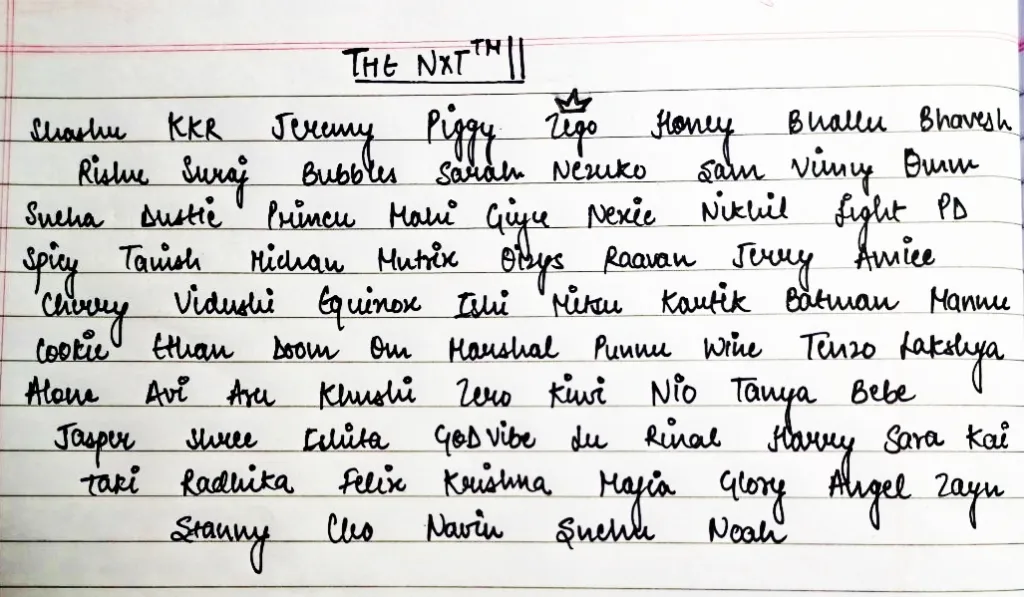 THE NXT™||
Shashu KKR Jeremy Piggy Zego Honey Bhallu Bhavesh
Rishu Suraj Bubbles Sarah Nezuko Sam Vinny Omm
Sneha Dustie Princu Mahi Giyu Nexie Nikhil Light PD
Spicy Tanish Michan Mutrix Oizys Raavan Jerry Amiee
Cherry Vidushi Equinox Ishi Mitsu Kautik Batman Mannu
Cookie Ethan Doom Om Marshal Punnu Wine Tenzo Lakshya
Alone Avi Aru Khushi Zero Kiwi Nio Tanya Bebe
Jasper Shree Ishita GODVibe Lu Rinal Harry Sara Kai
Taki Radhika Felix Krishna Mafia Glory Angel Zayn
Stanny Cleo Navin Snehu Noah